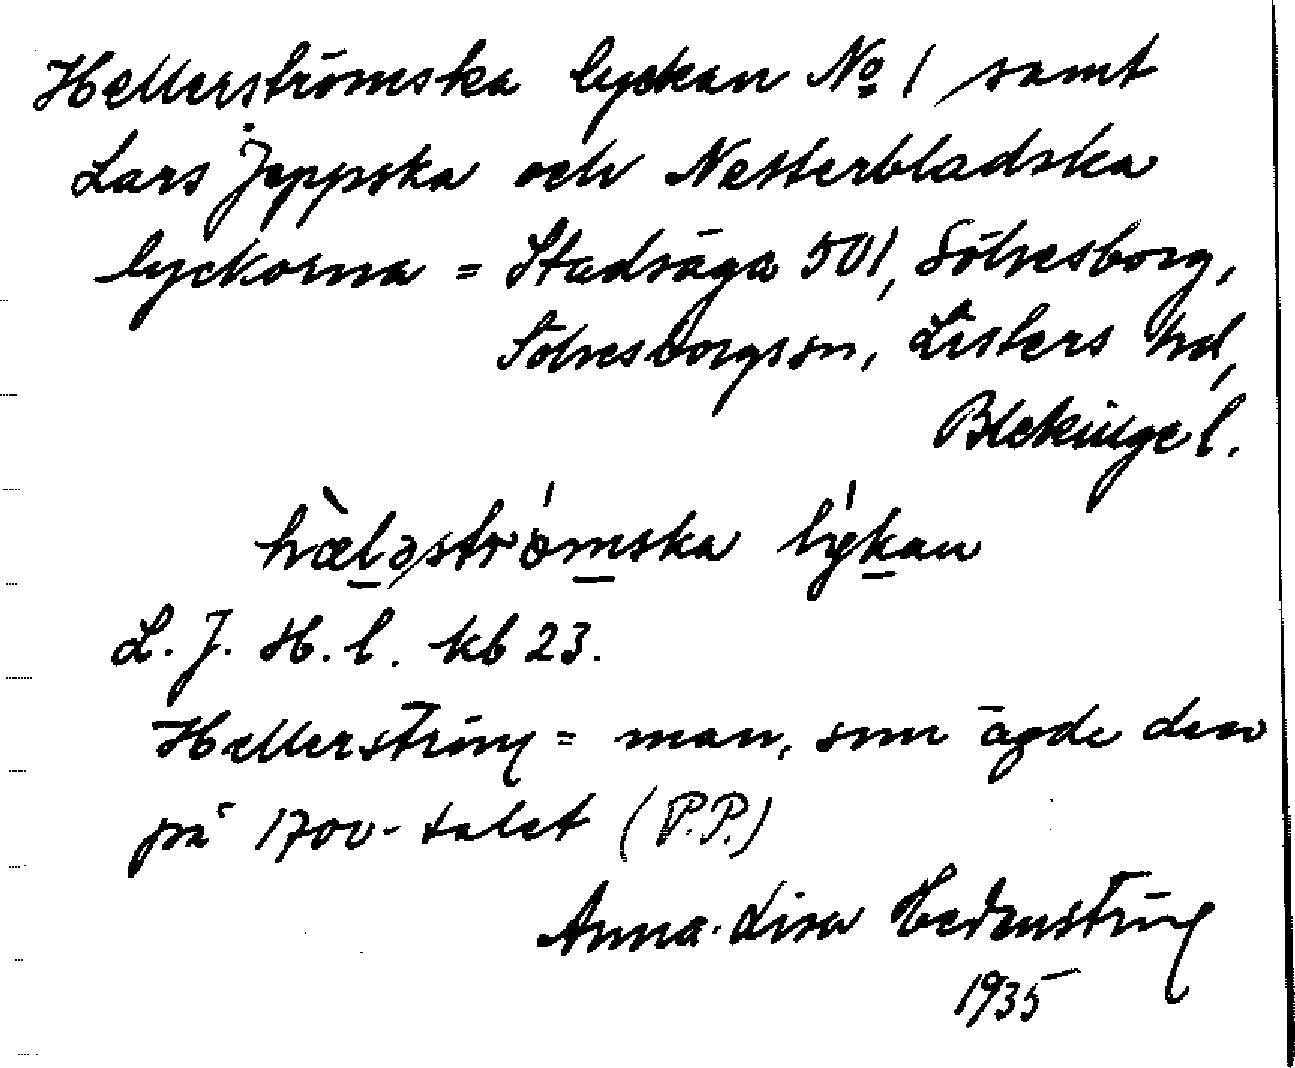 Hellerströmska lyckan No 1 samt
Lars Jeppska och Nesterbladska
lyckorna = Stadsäga 501, Sölvesborg,
Sölvesborgs sn, Listers hd,
Blekinge l.
L. J. H. l. kb 23.
Hellerström = man, som ägde den
på 1700-talet (P.P.)
Anna-Lisa Hedenström
1935